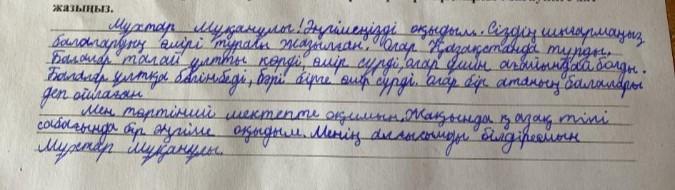 жазыңыз.
Мухтар Муқанулы! Әңгімеңізді оқыдым. Сіздің шығармаңыз
балалардың өмірі туралы жазылған. Олар Қазақстанда тұрды.
Балалар талай ұлтты көрді, өмір сүрді, олар үшін ағайындай болды.
Балалар ұлтқа бөлінбеді, бәрі бірге өмір сүрді. олар бір атаның балалары
деп ойлаған
Мен төртінші мектепте оқимын. Жақында қазақ тілі
сабағында бір әңгіме оқыдым. Менің алғысымды білдіремын
Мухтар Муқанулы.